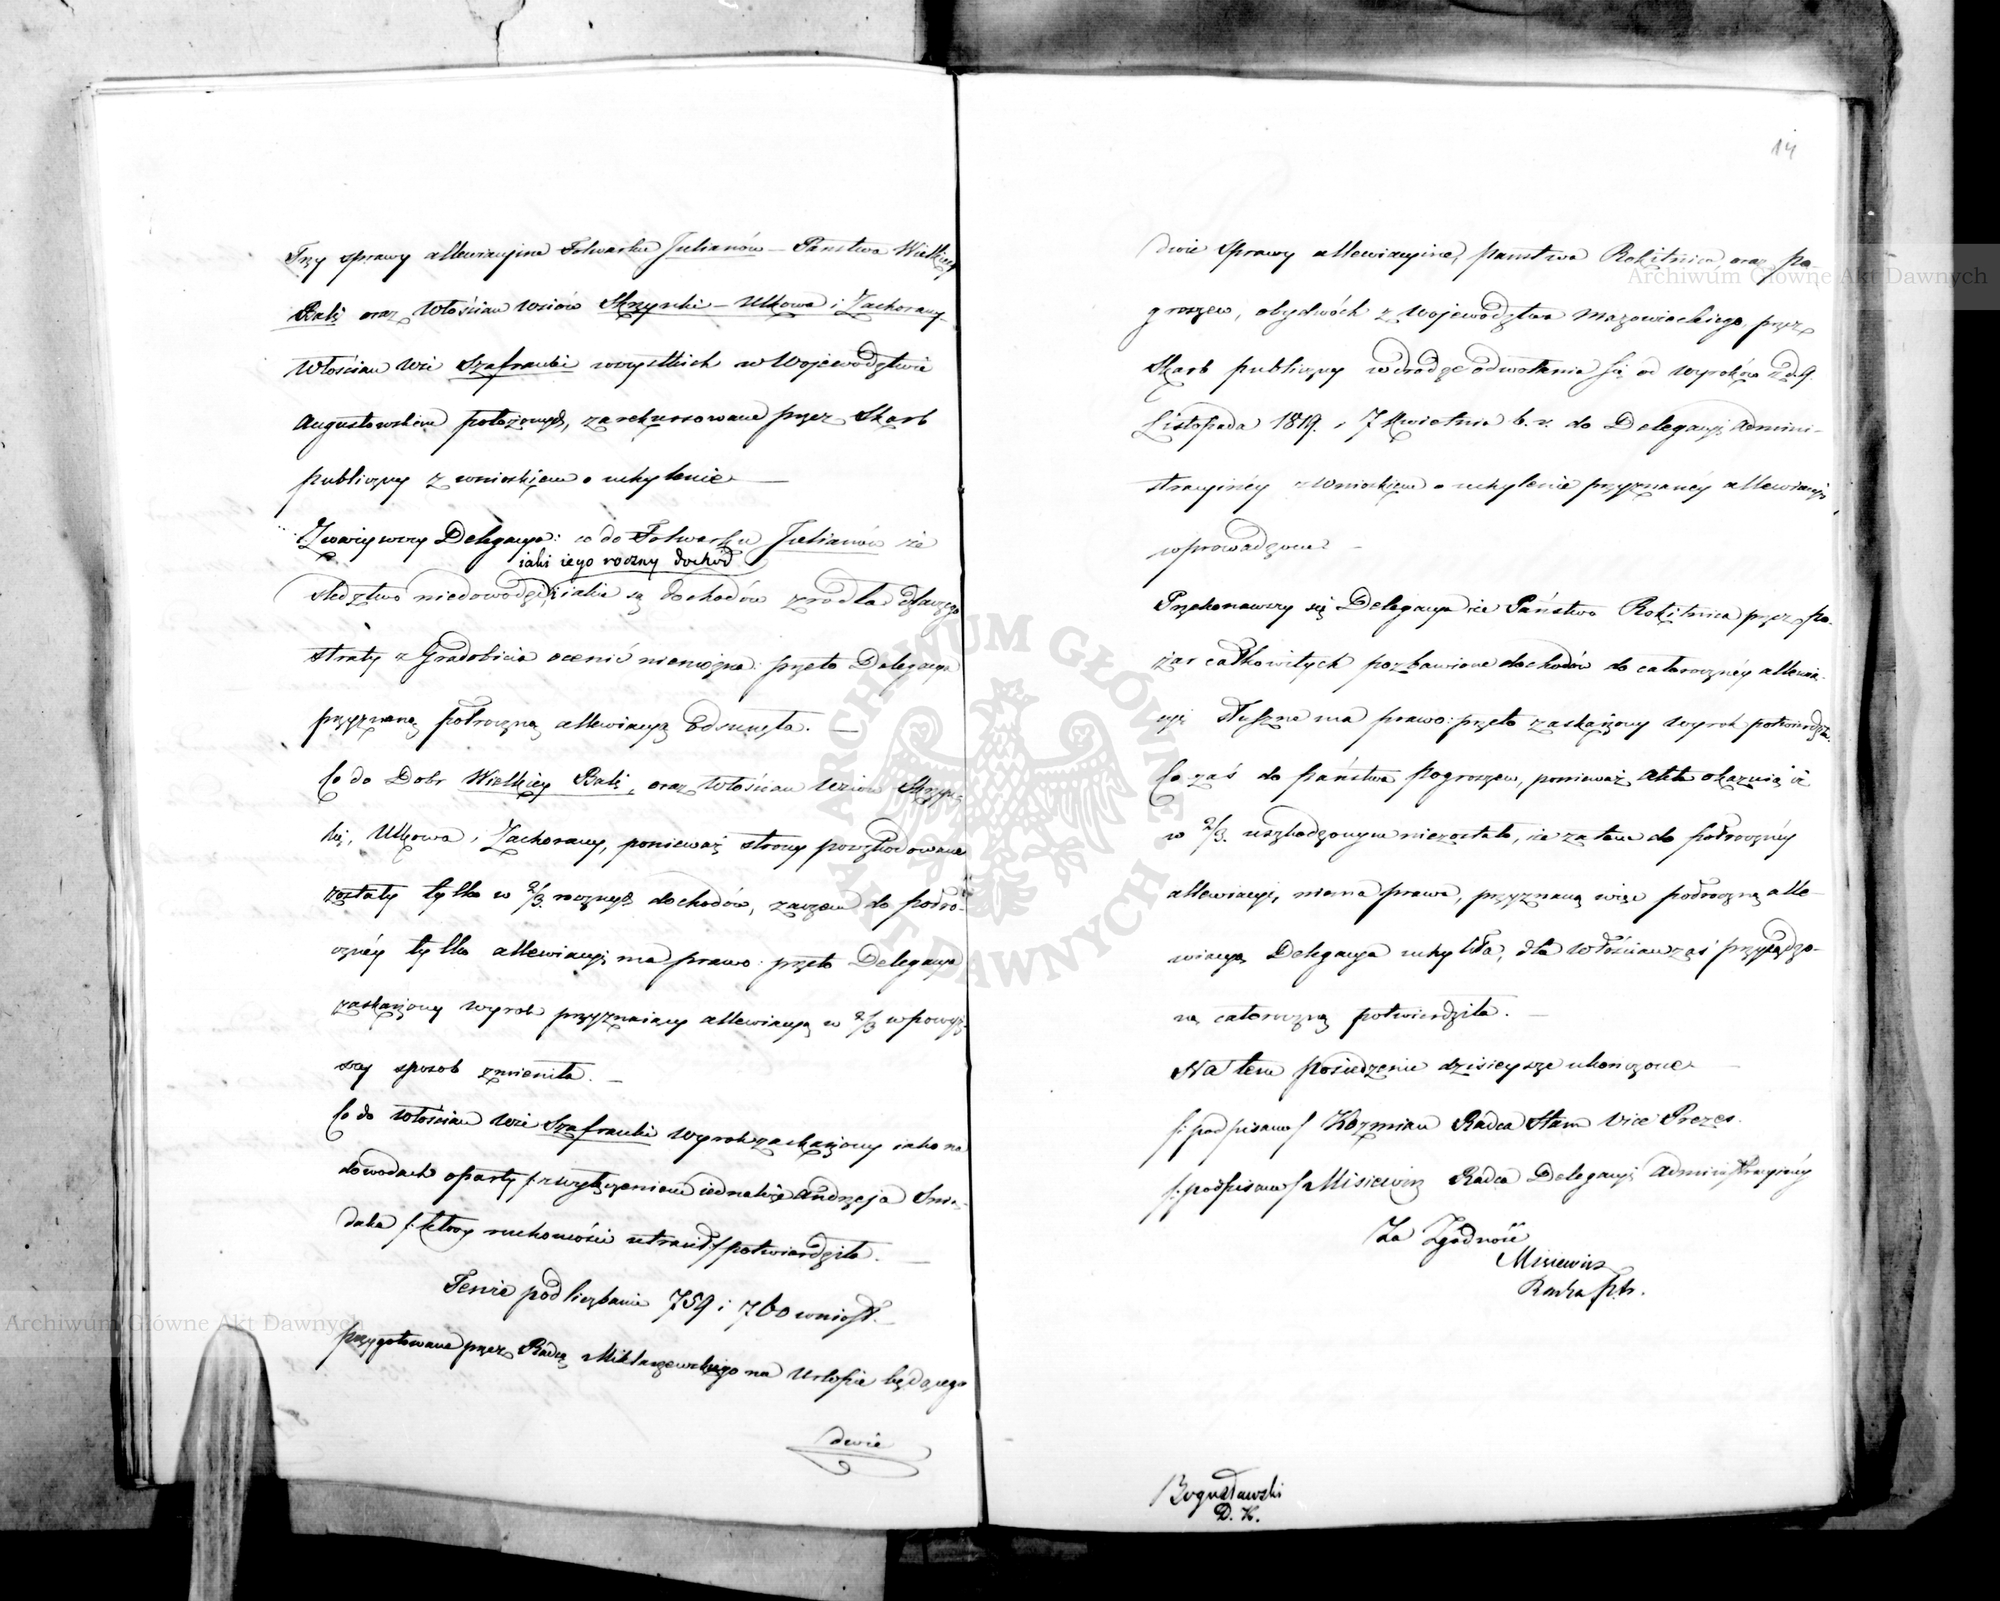 Trzy sprawy allewiacyine Folwarku Julianów – Państwa Wielkiey
Bakę oraz Włościan wsiów Skrzynki – Ulkowa i Zachorany –
Włościan Wsi Szafranki wszystkich w Województwie
Augustowskim położonych, zarekurrowane przez Skarb
publiczny z wnioskiem o uchylenie —
Zważywszy Delegacya: co do Folwarku Julianów że
jaki iego roczny dochód
śledztwo niedowodzi, iakie są dochodów zrodła dlaczego
straty z Gradobicia ocenić niemożna: przeto Delegacya
przyznaną półroczną allewiacyą Odsunęła. —
Co do Dobr Wielkiey Baki, oraz Włościan Wsiów Skrzyn-
ki, Ulkowa i Zachorany, ponieważ strony poszkodowane
zostały tylko w 2/3 rocznych dochodów, zaczem do półro-
czney tylko allewiacyi ma prawo: przeto Delegacya
zaskarżony wyrok przyznaiący allewiacyą w 2/3 w powyż-
szy sposob zmieniła. —
Co do Włościan Wsi Szafranki Wyrok zaskarżony iako na
dowodach oparty /: z wyłączeniem iednakże Andrzeja
/: który ruchomości utracił :/ potwierdziła. —
Tenże pod liczbami 759 i 760 wniosł.
przygotowane przez Radcę Miklaszewskiego na Urlopie będącego
dwie
14
dwie Sprawy allewiacyine, Państwa Rokitnica oraz Po-
groszew, obydwóch z Województwa Mazowieckiego, przez
Skarb publiczny w drodze odwołania się od wyroków z d. 9.
Listopada 1819. i 7 Kwietnia b. r. do Delegacyi Admini-
stracyiney z Wnioskiem o uchylenie przyznaney allewiacyi
wprowadzone —
Przekonawszy się Delegacya że Państwo Rokitnica przez po-
żar całkowitych pozbawione dochodów do całoroczney allewia-
cyi słuszne ma prawo: przeto zaskarżony wyrok potwierdza.
Co zaś do państwa Pogroszew, ponieważ akta okazuią iż
w 2/3. uszkodzonym niezostało, że zatem do półroczney
allewiacyi, niema prawa, przyznaną więc półroczną alle-
wiacyą Delegacya uchyliła, dla Włościan zaś przysądzo-
ną całoroczną potwierdziła. —
Na tem posiedzenie dzisieysze ukończone —
/: podpisano / Kozmian Radca Stanu Vice Prezes.
/: podpisano / Misiewicz Radca Delegacyi Administracyiney
Za Zgodność
Misiewicz
Bogusławski
D. K.
ARCHIWUM GŁÓWNE AKT DAWNYCH
Archiwum Główne Akt Dawnych
Archiwum Główne Akt Dawnych